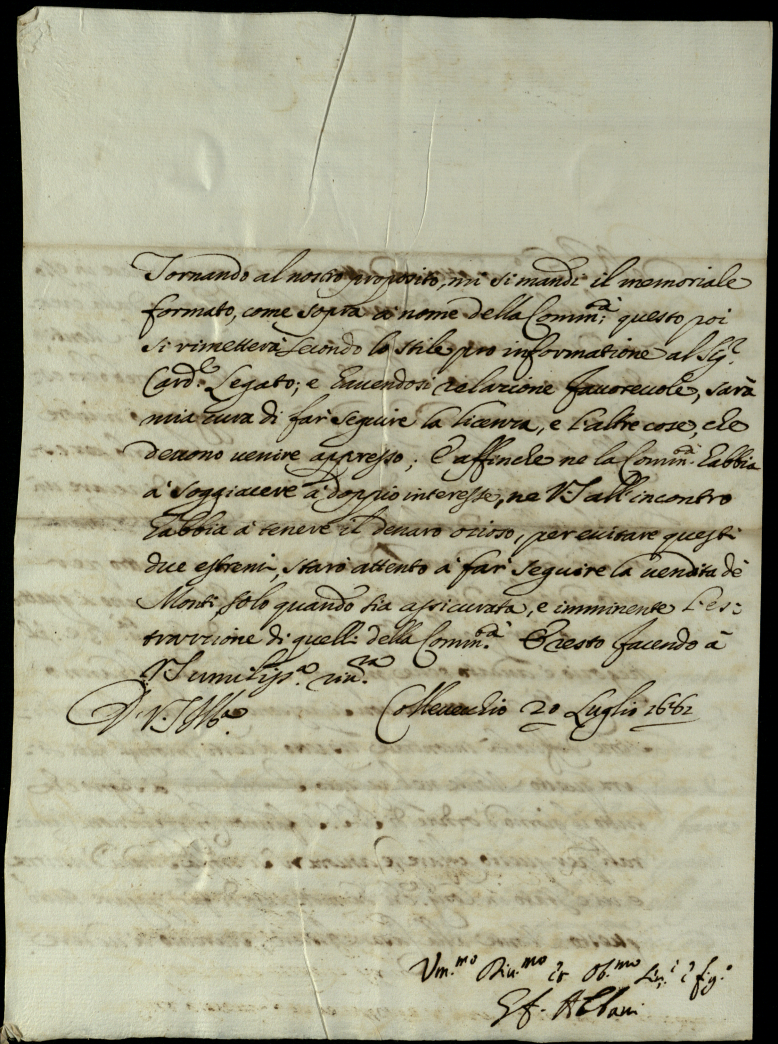 Tornando al nostro proposito, mi si mandi il memoriale
formato, come sopra à nome della Comm.tà; questo poi
si rimetterà secondo lo stile pro informatione al Sig.r
Card.e Legato; e hauendosi relazione fauoreuole, sarà
mia cura di far seguire la licenza, e l'altre cose, che
deuono uenire appresso; E affinche ne la Comm.tà habbia
à soggiacere à doppio interesse, ne V.S. all'incontro
habbia à tenere il denaro ozioso, per euitare questi
due estremi, starò attento à far seguire la uendita de
Monti solo quando sia assicurata, e imminente l'es:
trazzione di quelli della Comm.tà E resto facendo à
V.S. umiliss.a riu.za
D. V.S. Ill.ma Colleuecchio 20 Luglio 1661
Um.mo Diu.mo et Ob.mo
Albani